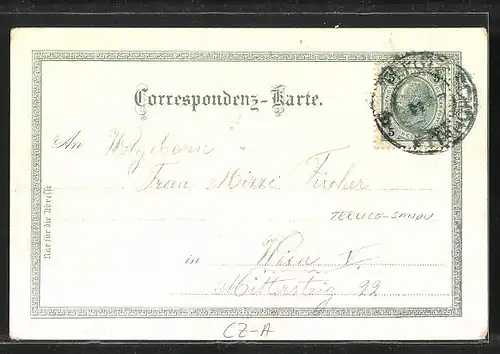 Correspondenz-Karte.
An Wolgeboren
Frau Mizzi Fischer
TERLICO-SANDV
in Wien V.
Mittersteig 22
Nur für die Adresse
CZ-A